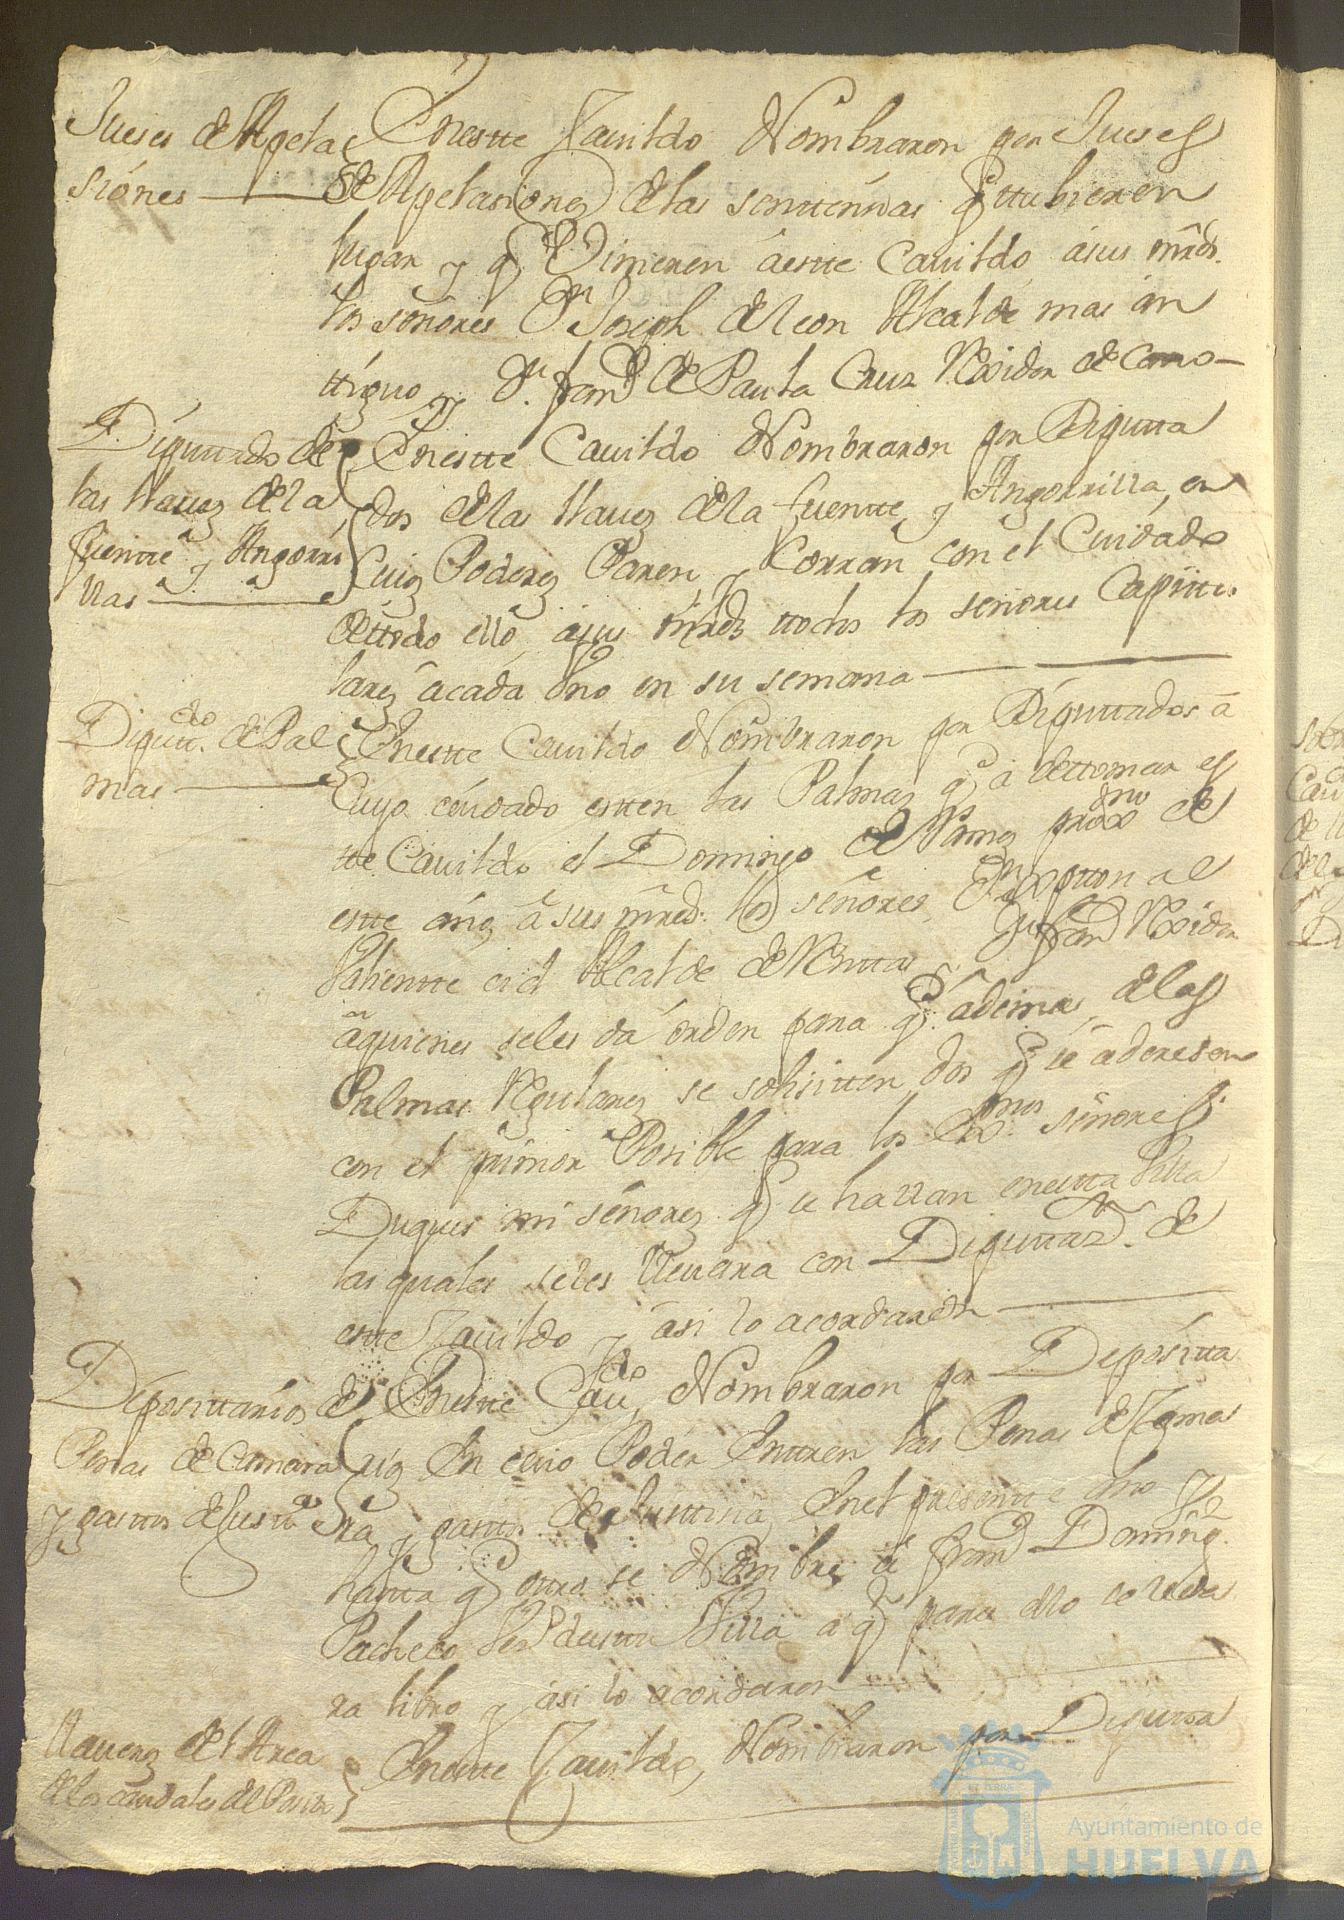 Jueses de Apela
siones
En estte Cavildo Nombraron por Jueses
de Apelasiones de las senttensias q ttubieren
lugar y q Vinieren á estte Cavildo á sus mrds.
los señores Dn. Joseph de leon Alcalde mas an
ttiguo y Dn. Franco de Paula Cruz Rexidor decano
Diputtado de
las llaves de la
fuentte y Angorri
llas
En estte Cavildo Nombraron por Diputta
dos de las llaves de la fuentte y Angorrilla, en
Cuios Poderes Paren y Corran con el Cuidado
de ttodo ello, a sus mrds ttodos los señores Capittu
lares á cada Uno en su semana
Diputtdo. de Pal
mas
En estte Cavildo Nombraron por Diputtados á
Cuyo cuidado estten las Palmas q á de ttomar es
tte Cavildo el Domingo de Ramos proxmo de
estte año, á sus mrd. los señores,
Valientte Alcalde de Renttas Rexidor
á quienes se les dá orden para q. ademas, de las
Palmas Regulares se solisitten dos q se aderesen
con el primor Posible para los Exmos. señores
Duques mis señores q se hallan en estta Villa
las quales se les llevara con Diputtazn. de
estte Cavildo y ási lo acordaron
Deposittarios de
Penas de Camara
y gasttos de Justta
En estte Cavdo, Nombraron por Deposítta
rio En cuio Poder Enttren las Penas de Cama
ra y gasttos de Justtisia, En el presentte año y
hastta q ottro se Nombre á Franco Domíng.
Pacheco Vezo de estta Villa a q para ello se le da
ra libro y ási lo acordaron
llaveros del Arca
de los caudales del Posito
En estte Cavildo, Nombraron por Diputta
Ayuntamiento de
HUELVA